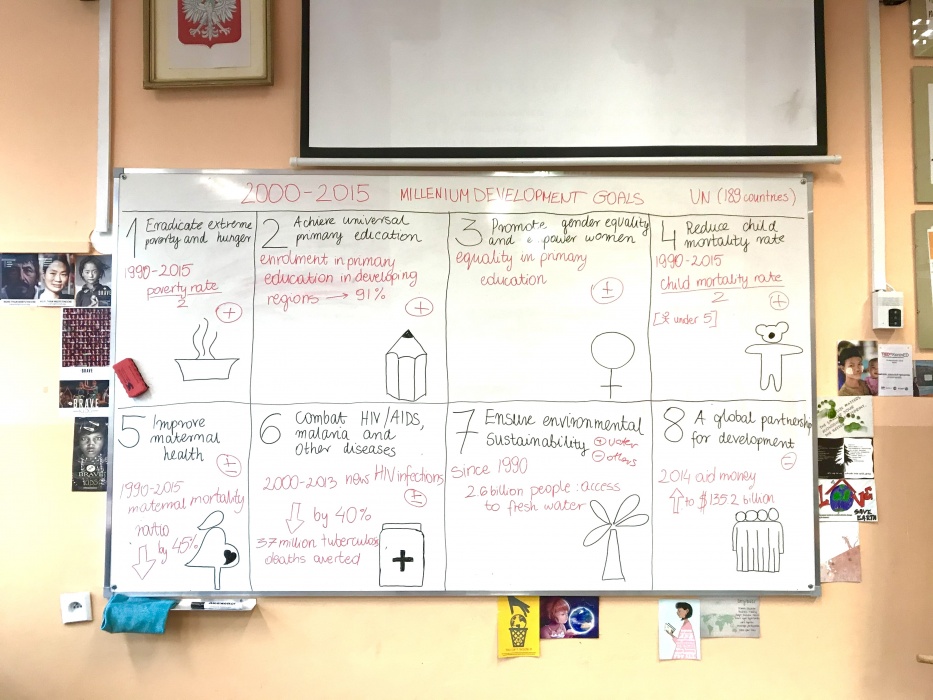 2000-2015 MILLENIUM DEVELOPMENT GOALS UN (189 countries)
1 Erradicate extreme
poverty and hunger
1990-2015
poverty rate
2
+
2 Achieve universal
primary education
enrolment in primary
education in developing
regions → 91%
+
3 Promote gender equality
and e power women
equality in primary
education
±
4 Reduce child
mortality rate
1990-2015
child mortality rate
2
[ under 5]
+
5 Improve
maternal
health
±
1990-2015
maternal mortality
ratio
by 45%
6 Combat HIV/AIDS,
malaria and
other diseases
2000-2013 new HIV infections
±
by 40%
37 million tuberculosis
deaths averted
+
7 Ensure environmental
sustainability + water
- others
since 1990
2.6 billion people: access
to fresh water
8 A global partnership
for development
-
2014 aid money
↑ to $135.2 billion
BRAVE
BRAVE
BRAVE
SAVE
EARTH